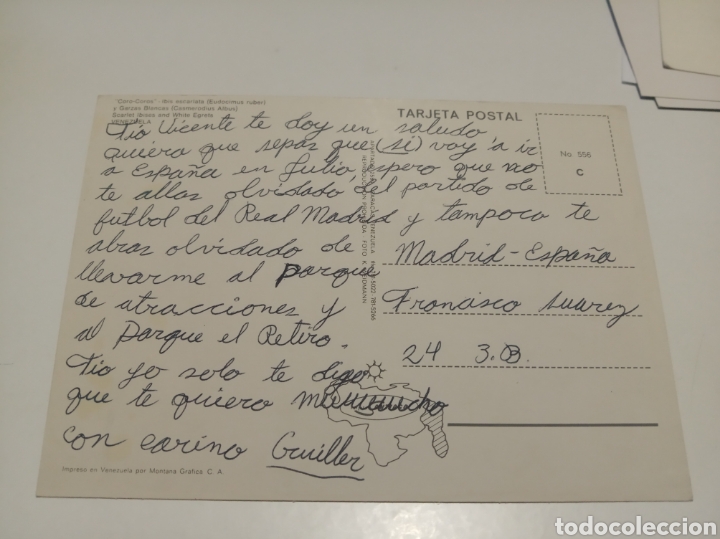 "Coro-Coros" - Ibis escarlata (Eudocimus ruber)
y Garzas Blancas (Casmerodius Albus)
Scarlet Ibises and White Egrets
VENEZUELA
TARJETA POSTAL
No 556
C
Tio Vicente te doy un saludo
quiero que sepas que (si) voy a ir
a España en Julio, espero que no
te allas olvidado del partido de
futbol del Real Madrid y tampoco te
abras olvidado de
llevarme al parque
de atracciones y
al Parque el Retiro.
Tio yo solo te digo
que te quiero muuuuucho
con cariño Guiller
Madrid-España
Francisco Suarez
24 3.B.
Impreso en Venezuela por Montana Grafica C. A.
todocoleccion